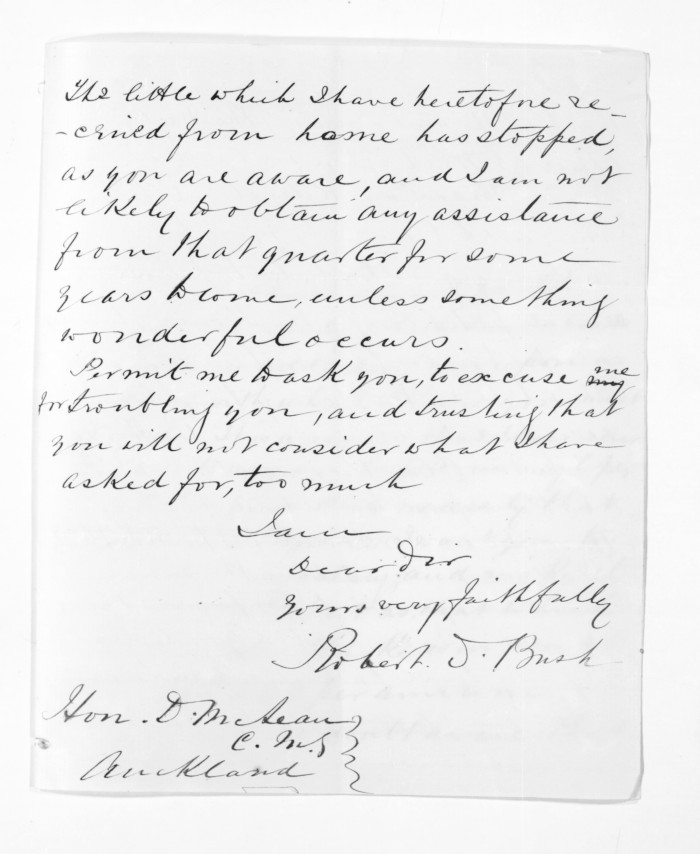 The little which I have heretofore re-
-ceived from home has stopped,
as you are aware, and I am not
likely to obtain any assistance
from that quarter for some
years to come, unless something
wonderful occurs.
Permit me to ask you, to excuse me
for troubling you, and trusting that
you will not consider what I have
asked for, too much
I am
Dear Sir
Yours very faithfully
Robert. S. Bush
Hon. D. McLean
C. M. G
Auckland